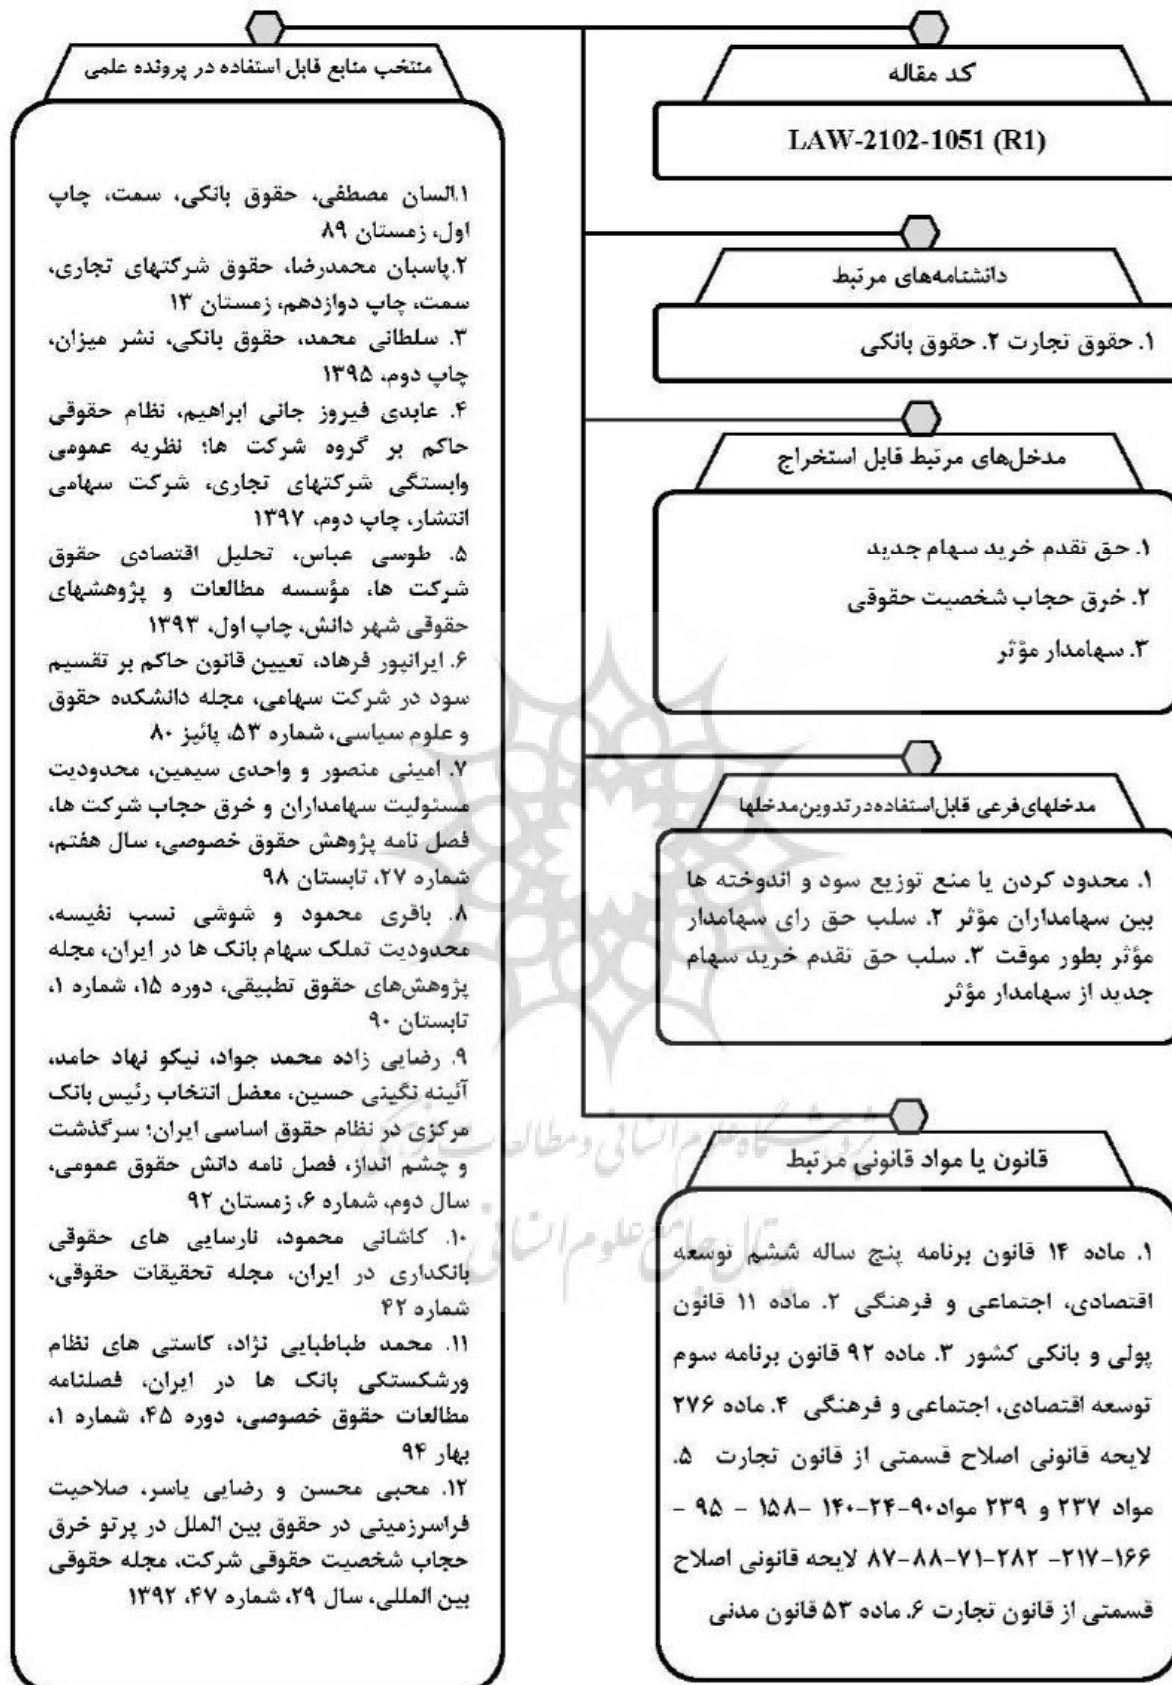 کد مقاله
LAW-2102-1051 (R1)
دانشنامه‌های مرتبط
۱. حقوق تجارت ۲. حقوق بانکی
مدخل‌های مرتبط قابل استخراج
۱. حق تقدم خرید سهام جدید
۲. خرق حجاب شخصیت حقوقی
۳. سهامدار مؤثر
مدخلهای فرعی قابل استفاده در تدوین مدخلها
۱. محدود کردن یا منع توزیع سود و اندوخته ها
بین سهامداران مؤثر ۲. سلب حق رای سهامدار
مؤثر بطور موقت ۳. سلب حق تقدم خرید سهام
جدید از سهامدار مؤثر
قانون یا مواد قانونی مرتبط
۱. ماده ۱۴ قانون برنامه پنج ساله ششم توسعه
اقتصادی، اجتماعی و فرهنگی ۲. ماده ۱۱ قانون
پولی و بانکی کشور ۳. ماده ۹۲ قانون برنامه سوم
توسعه اقتصادی، اجتماعی و فرهنگی ۴. ماده ۲۷۶
لایحه قانونی اصلاح قسمتی از قانون تجارت ۵.
مواد ۲۳۷ و ۲۳۹ مواد۹۰-۲۴-۱۴۰ -۱۵۸ - ۹۵ -
۱۶۶-۲۱۷- ۲۸۲-۷۱-۸۸-۸۷ لایحه قانونی اصلاح
قسمتی از قانون تجارت ۶. ماده ۵۳ قانون مدنی
منتخب منابع قابل استفاده در پرونده علمی
۱.السان مصطفی، حقوق بانکی، سمت، چاپ
اول، زمستان ۸۹
۲.پاسبان محمدرضا، حقوق شرکتهای تجاری،
سمت، چاپ دوازدهم، زمستان ۱۳
۳. سلطانی محمد، حقوق بانکی، نشر میزان،
چاپ دوم، ۱۳۹۵
۴. عابدی فیروز جائی ابراهیم، نظام حقوقی
حاکم بر گروه شرکت ها؛ نظریه عمومی
وابستگی شرکتهای تجاری، شرکت سهامی
انتشار، چاپ دوم، ۱۳۹۷
۵. طوسی عباس، تحلیل اقتصادی حقوق
شرکت ها، مؤسسه مطالعات و پژوهشهای
حقوقی شهر دانش، چاپ اول، ۱۳۹۳
۶. ایرانپور فرهاد، تعیین قانون حاکم بر تقسیم
سود در شرکت سهامی، مجله دانشکده حقوق
و علوم سیاسی، شماره ۵۳، پائیز ۸۰
۷. امینی منصور و واحدی سیمین، محدودیت
مسئولیت سهامداران و خرق حجاب شرکت ها،
فصل نامه پژوهش حقوق خصوصی، سال هفتم،
شماره ۲۷، تابستان ۹۸
۸. باقری محمود و شوشی نسب نفیسه،
محدودیت تملک سهام بانک ها در ایران، مجله
پژوهش‌های حقوق تطبیقی، دوره ۱۵، شماره ۱،
تابستان ۹۰
۹. رضایی زاده محمد جواد، نیکو نهاد حامد،
آئینه نگینی حسین، معضل انتخاب رئیس بانک
مرکزی در نظام حقوق اساسی ایران؛ سرگذشت
و چشم انداز، فصل نامه دانش حقوق عمومی،
سال دوم، شماره ۶، زمستان ۹۲
۱۰. کاشانی محمود، نارسایی های حقوقی
بانکداری در ایران، مجله تحقیقات حقوقی،
شماره ۴۲
۱۱. محمد طباطبایی نژاد، کاستی های نظام
ورشکستکی بانک ها در ایران، فصلنامه
مطالعات حقوق خصوصی، دوره ۴۵، شماره ۱،
بهار ۹۴
۱۲. محبی محسن و رضایی یاسر، صلاحیت
فراسرزمینی در حقوق بین الملل در پرتو خرق
حجاب شخصیت حقوقی شرکت، مجله حقوقی
بین المللی، سال ۲۹، شماره ۴۷، ۱۳۹۲
پژوهشگاه علوم انسانی و مطالعات فرهنگی
پرتال جامع علوم انسانی